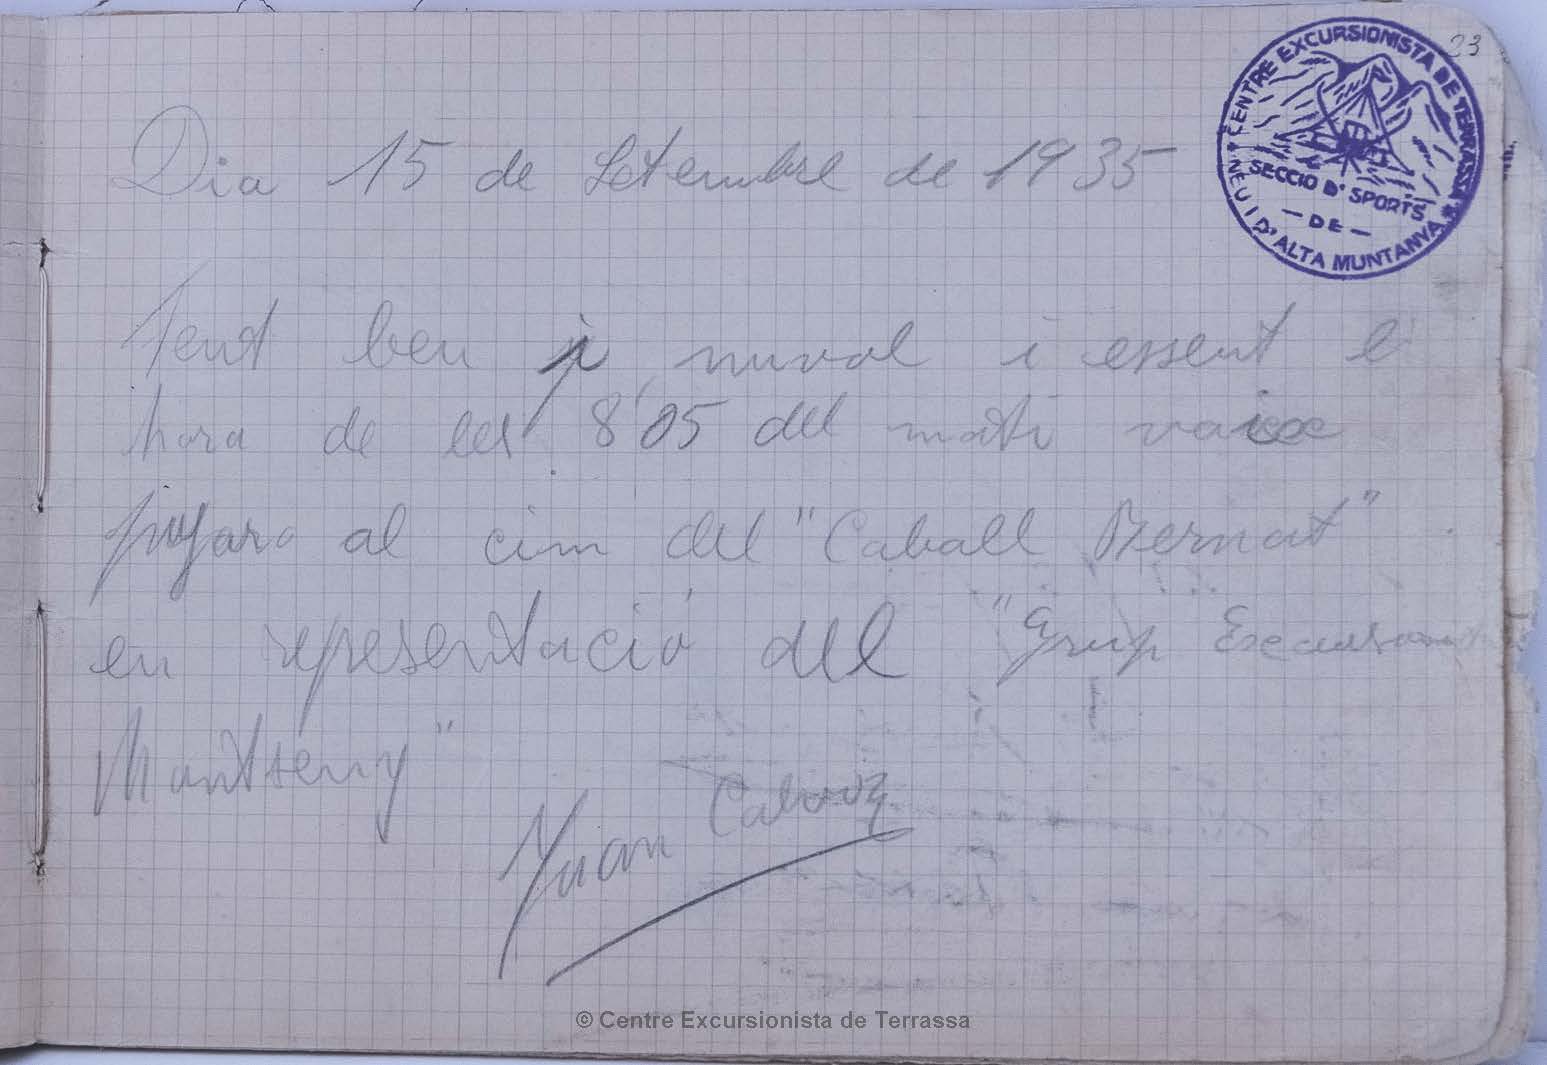 23
CENTRE EXCURSIONISTA DE TERRASSA
SECCIO D' SPORTS
- DE -
NEU I D'ALTA MUNTANYA
Dia 15 de Setembre de 1935
Fent ben nuvol i essent l'
hora de les 8'05 del mati vaix
pujara al cim del "Caball Bernat"
en representació del "Grup Excursionista
Montseny"
Juan
© Centre Excursionista de Terrassa